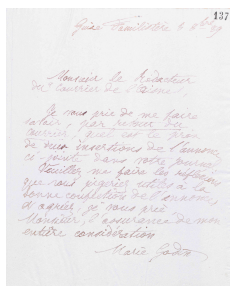 137
Guise Familistère 4 8bre 89
Monsieur le Rédacteur
du "Courrier de l'Aisne",
Je vous prie de me faire
savoir, par retour du
courrier, quel est le prix
de deux insertions de l'annonce
ci-jointe dans votre journal.
Veuillez me faire les réflexions
que vous jugeriez utiles à la
bonne confection de l'annonce
et agréer, je vous prie
Monsieur, l'assurance de mon
entière considération
Marie Godin